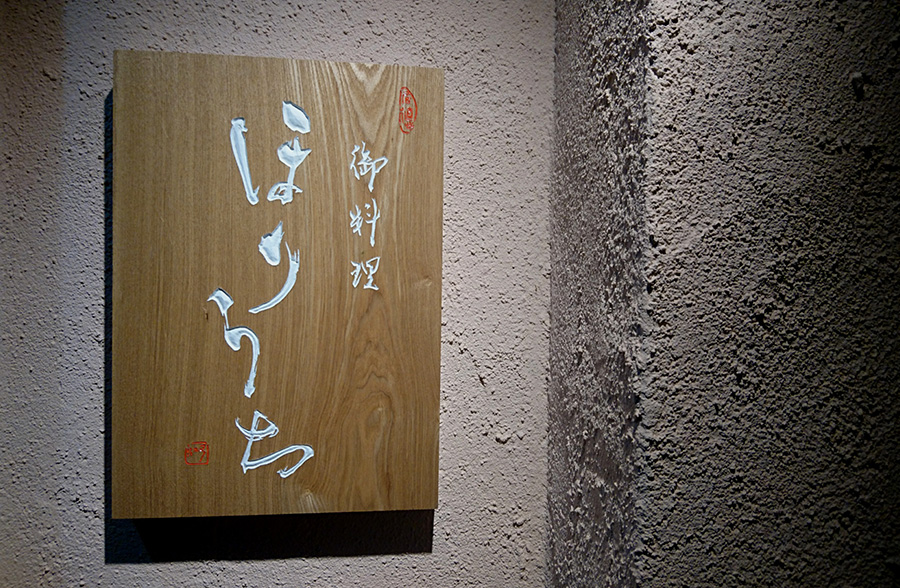 御料理
ほりうち